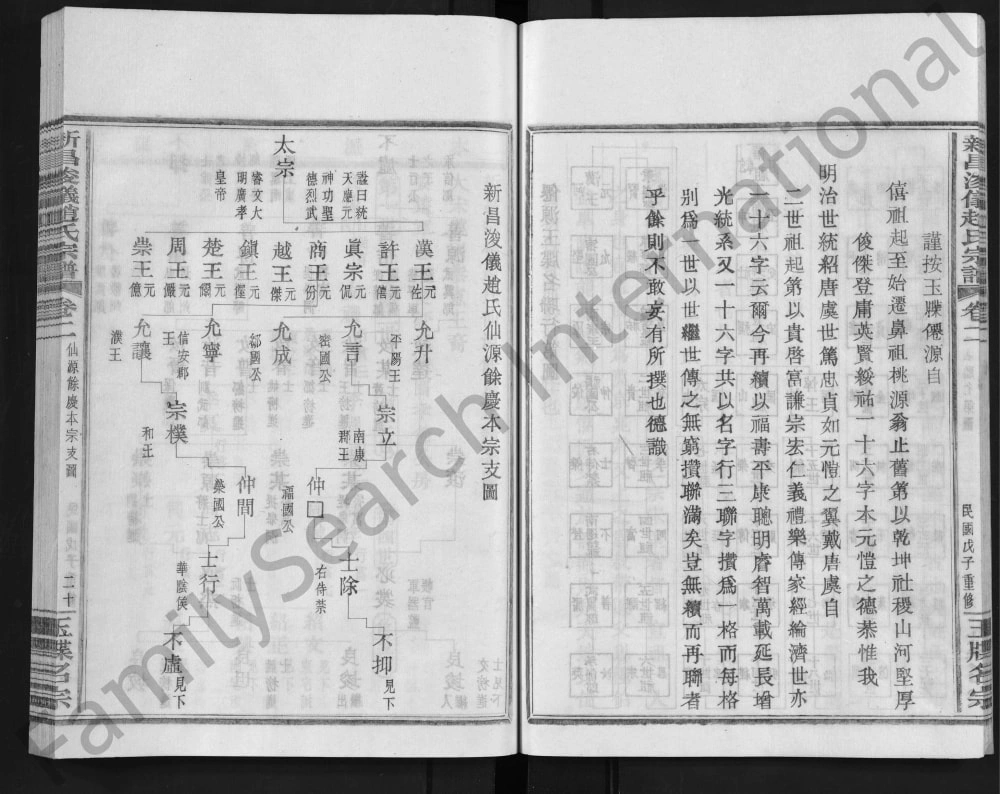 新昌浚儀趙氏宗譜
卷二
民國戊子重修
玉牒名宗
謹按玉牒僊源自
僖祖起至始遷鼻祖桃源翁止舊第以乾坤社稷山河堅厚
俊傑登庸英賢綏祐一十六字本元愷之德恭惟我
明治世統紹唐虞世篤忠貞如元愷之翼戴唐虞自
二世祖起第以貴啓富謙宗宏仁義禮樂傳家經綸濟世亦
一十六字云爾今再續以福壽平康聰明睿智萬載延長增
光統系又一十六字共以名字行三聯字攢爲一格而每格
別爲一世以世繼世傳之無窮攢聯滿矣豈無續而再聯者
乎餘則不敢妄有所撰也德識
新昌浚儀趙氏仙源餘慶本宗支圖
太宗
諡曰統
天應元
神功聖
德烈武
睿文大
明廣孝
皇帝
漢王元佐
許王元僖
眞宗元侃
商王元份
越王元傑
鎭王元偓
楚王元偁
周王元儼
崇王元億
允升
平陽王
允言
密國公
允成
鄒國公
允寧
信安郡
王
允讓
濮王
宗立
南康
郡王
宗樸
和王
仲□
福國公
仲間
榮國公
士除
右侍禁
士行
華陰侯
不抑見下
不虛見下
新昌浚儀趙氏宗譜
卷二
仙源餘慶本宗支圖
二十
玉牒名宗
FamilySearch International